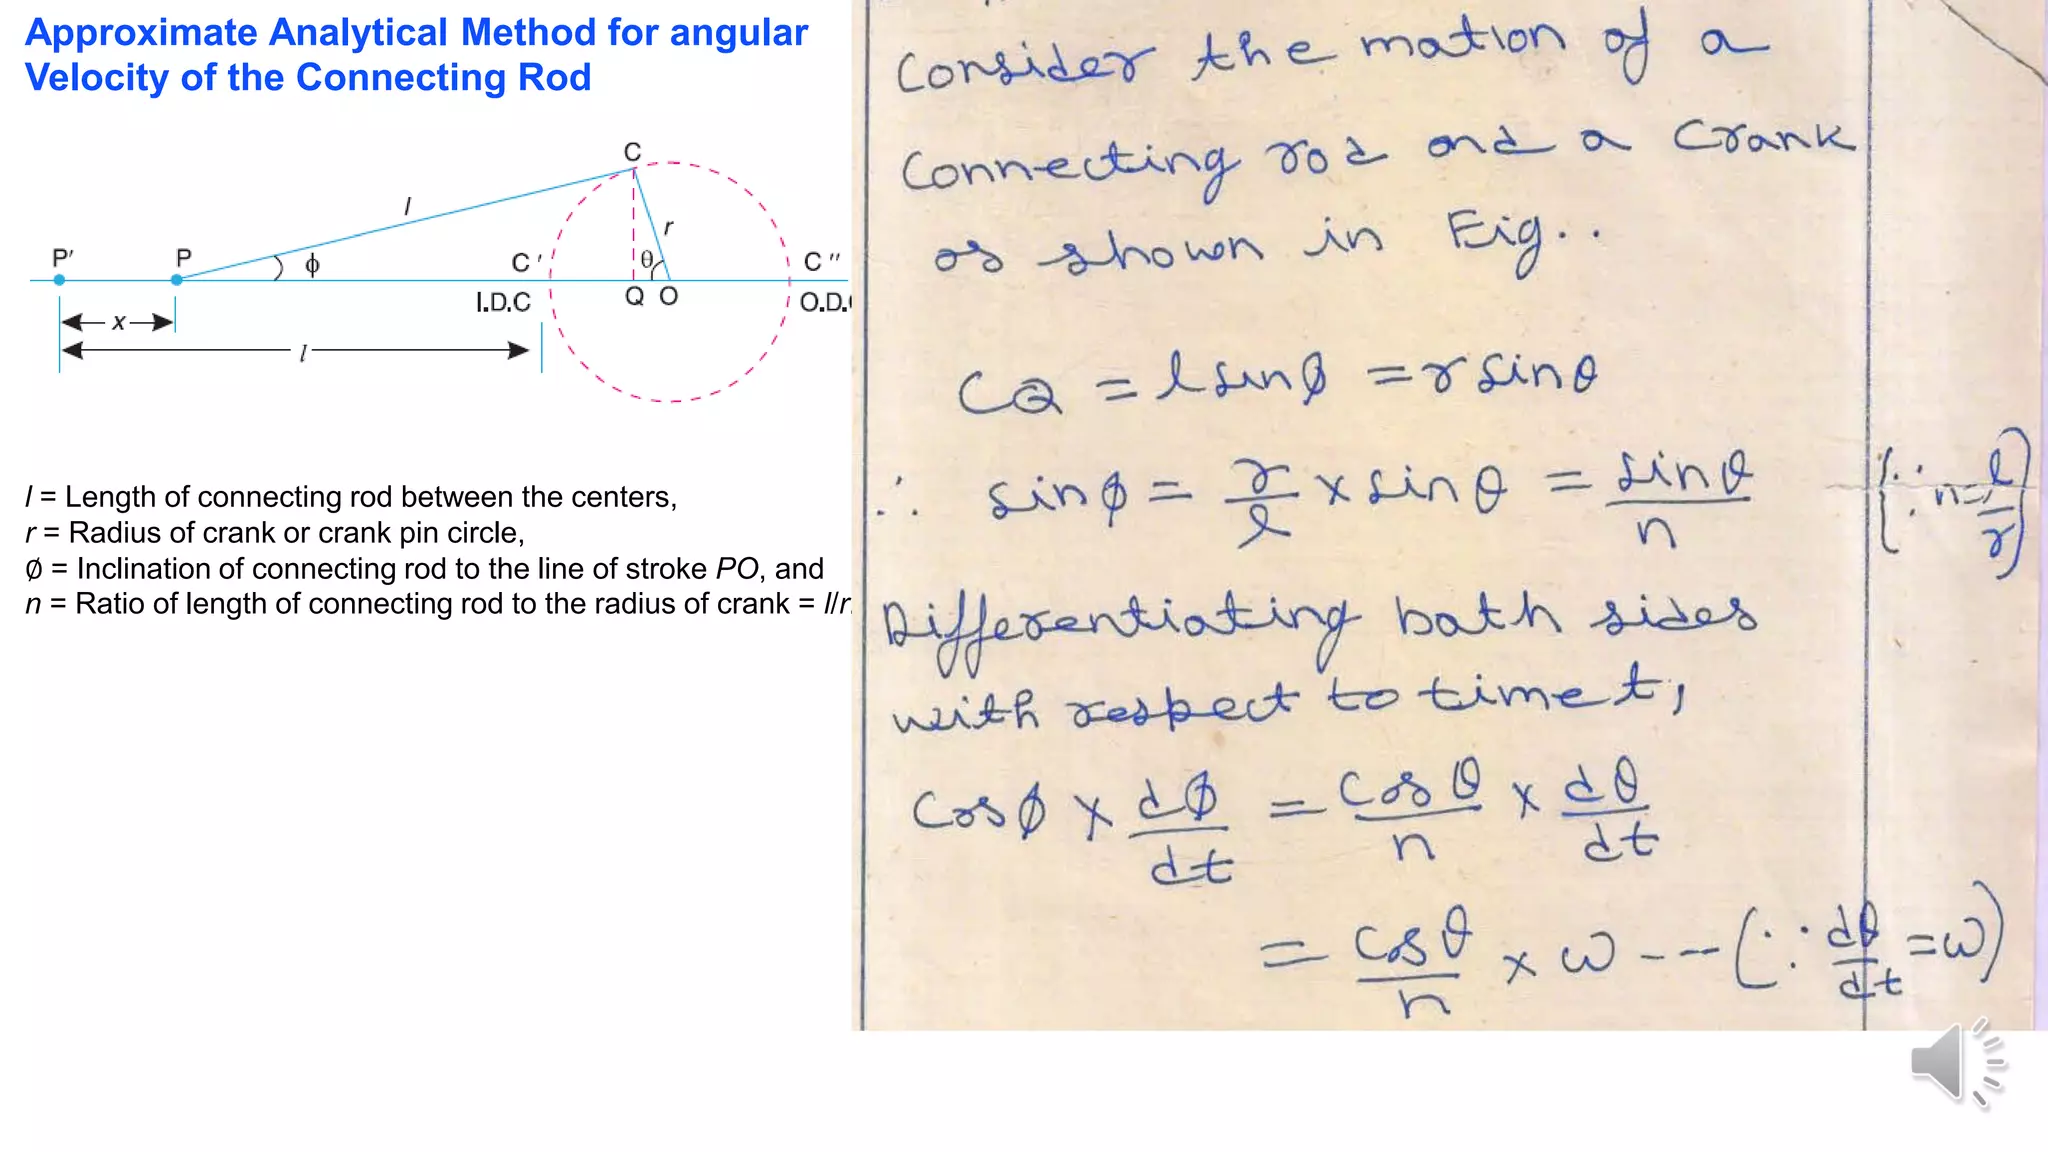 Approximate Analytical Method for angular
Velocity of the Connecting Rod
C
l
r
P′ P ϕ C ′ θ C ″
I.D.C Q O O.D.
x
l
l = Length of connecting rod between the centers,
r = Radius of crank or crank pin circle,
∅ = Inclination of connecting rod to the line of stroke PO, and
n = Ratio of length of connecting rod to the radius of crank = l/r.
Consider the motion of a
Connecting rod and a Crank
as shown in Fig..
CQ = l sinϕ = r sinθ
∴ sinϕ = r/l × sinθ = sinθ/n {∵ n = l/r}
Differentiating both sides
with respect to time t,
Cosϕ × dϕ/dt = Cosθ/n × dθ/dt
= Cosθ/n × ω -- (∵ dθ/dt = ω)